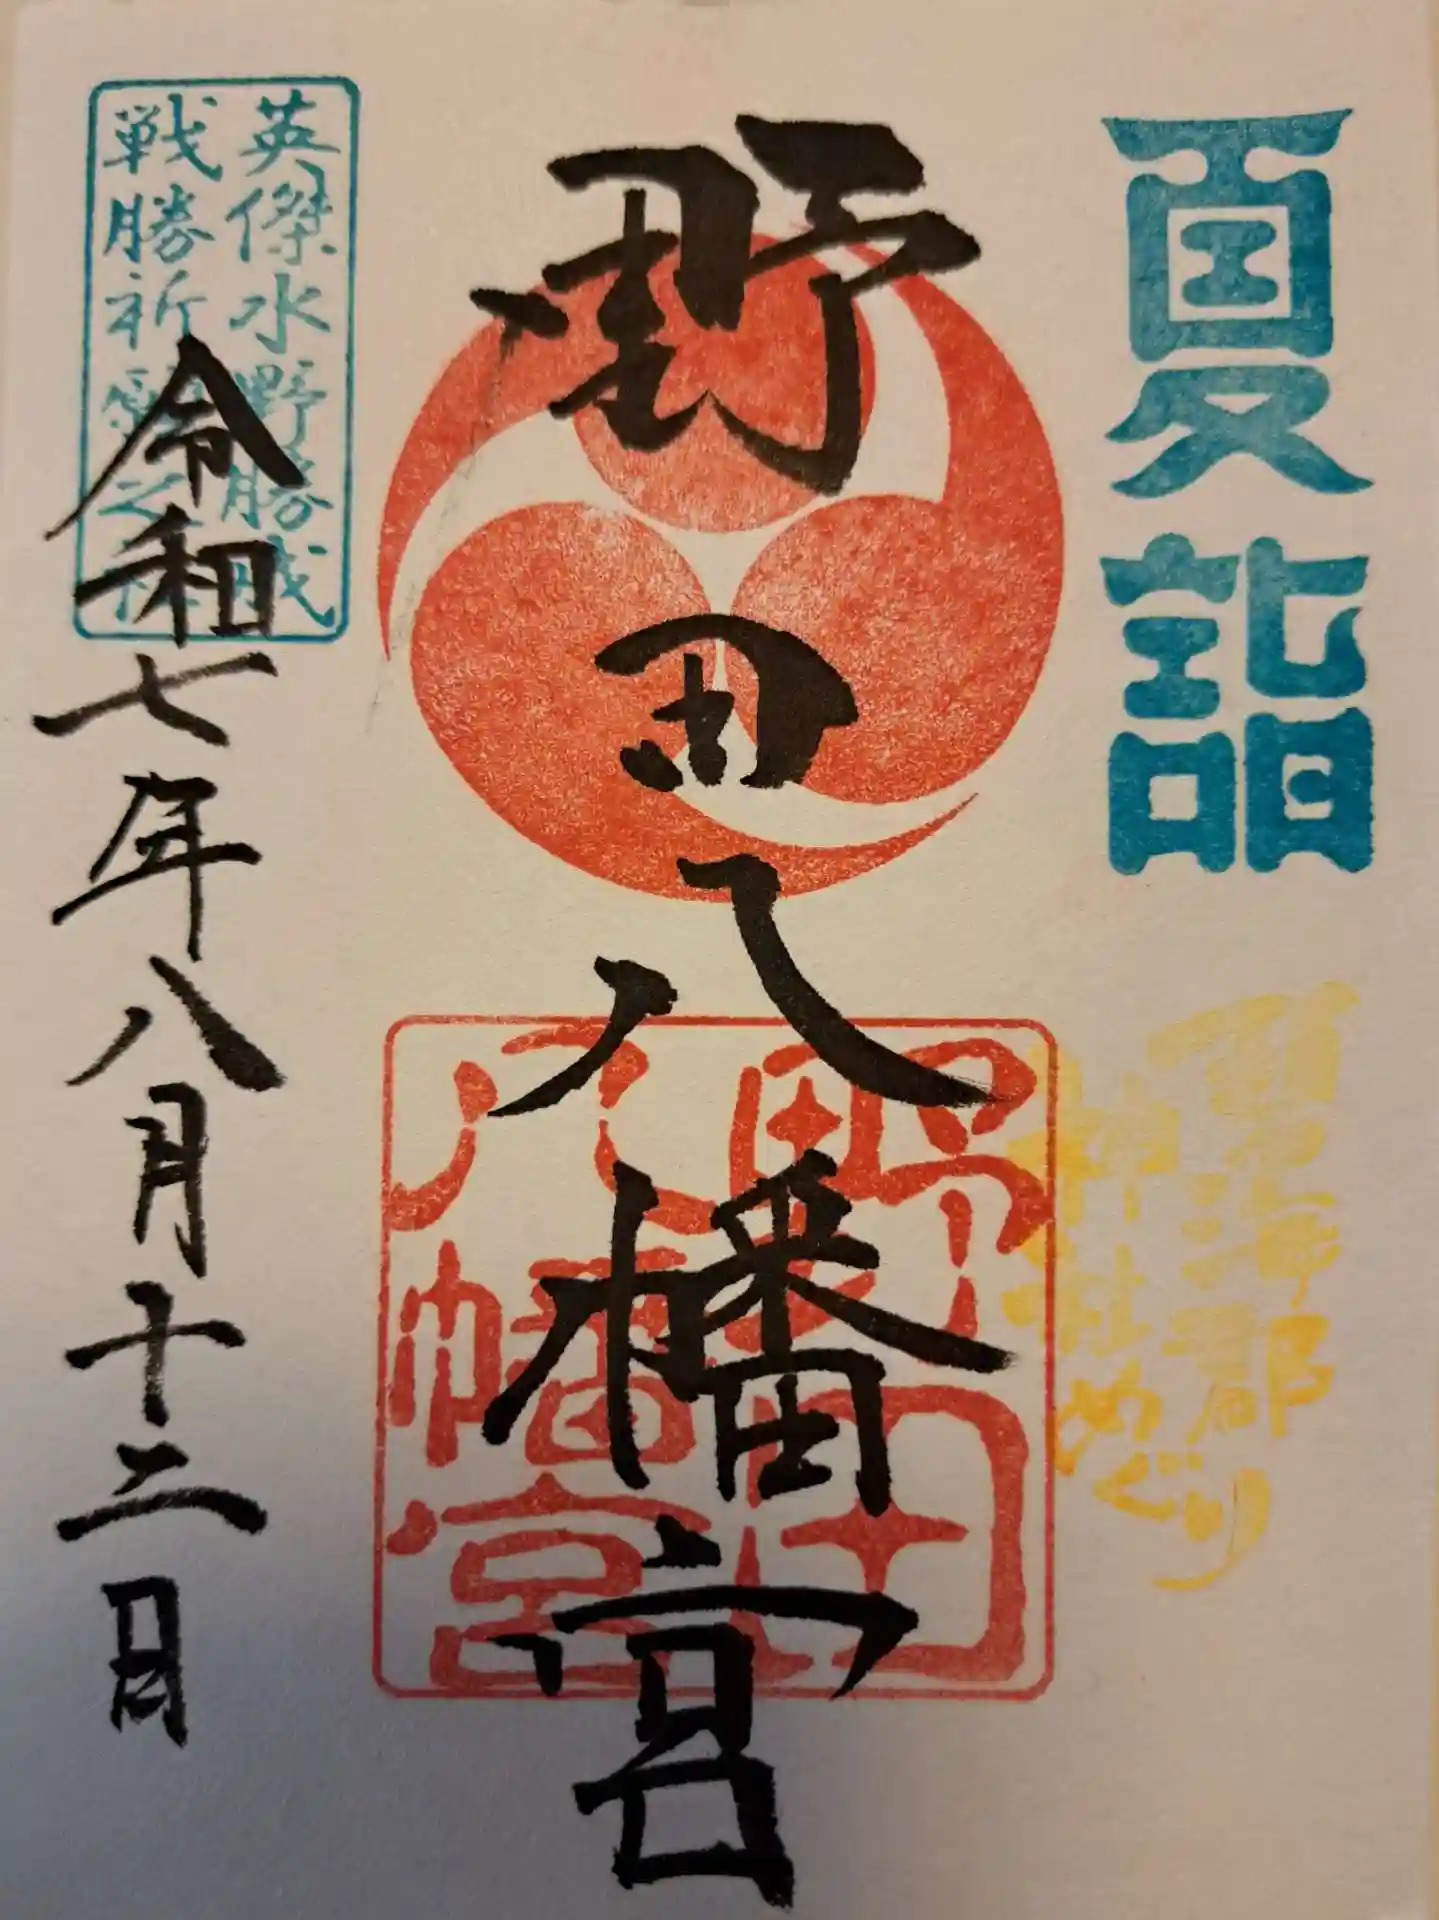 夏詣
碧海郡
神社めぐり
野田八幡宮
野田
八幡宮
英傑水野勝成
戦勝祈願之社
令和七年八月十二日